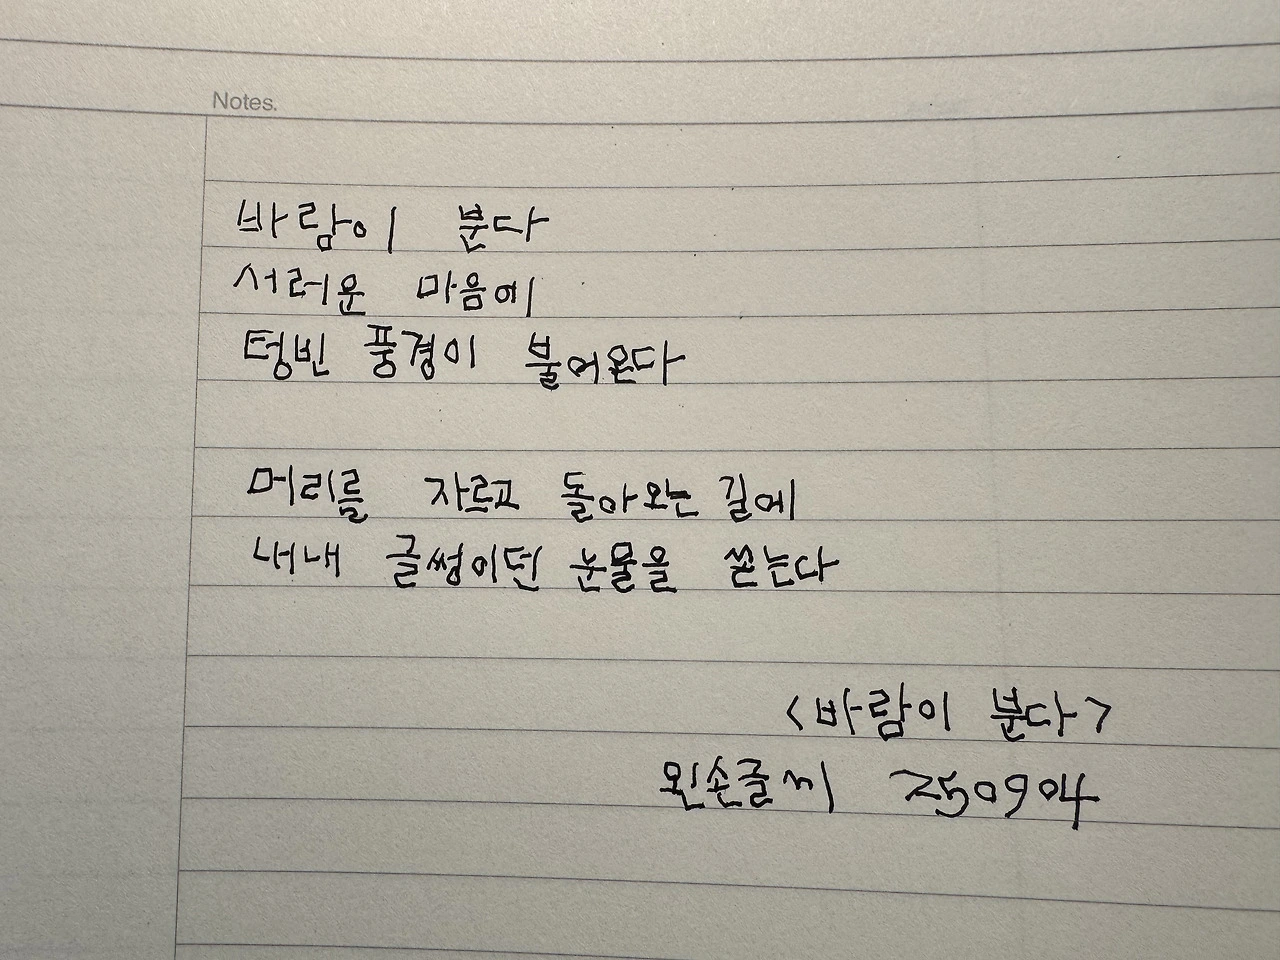 Notes.
바람이 분다
서러운 마음에
텅빈 풍경이 불어온다
머리를 자르고 돌아오는 길에
내내 글썽이던 눈물을 쏟는다
<바람이 분다>
왼손글씨 250904